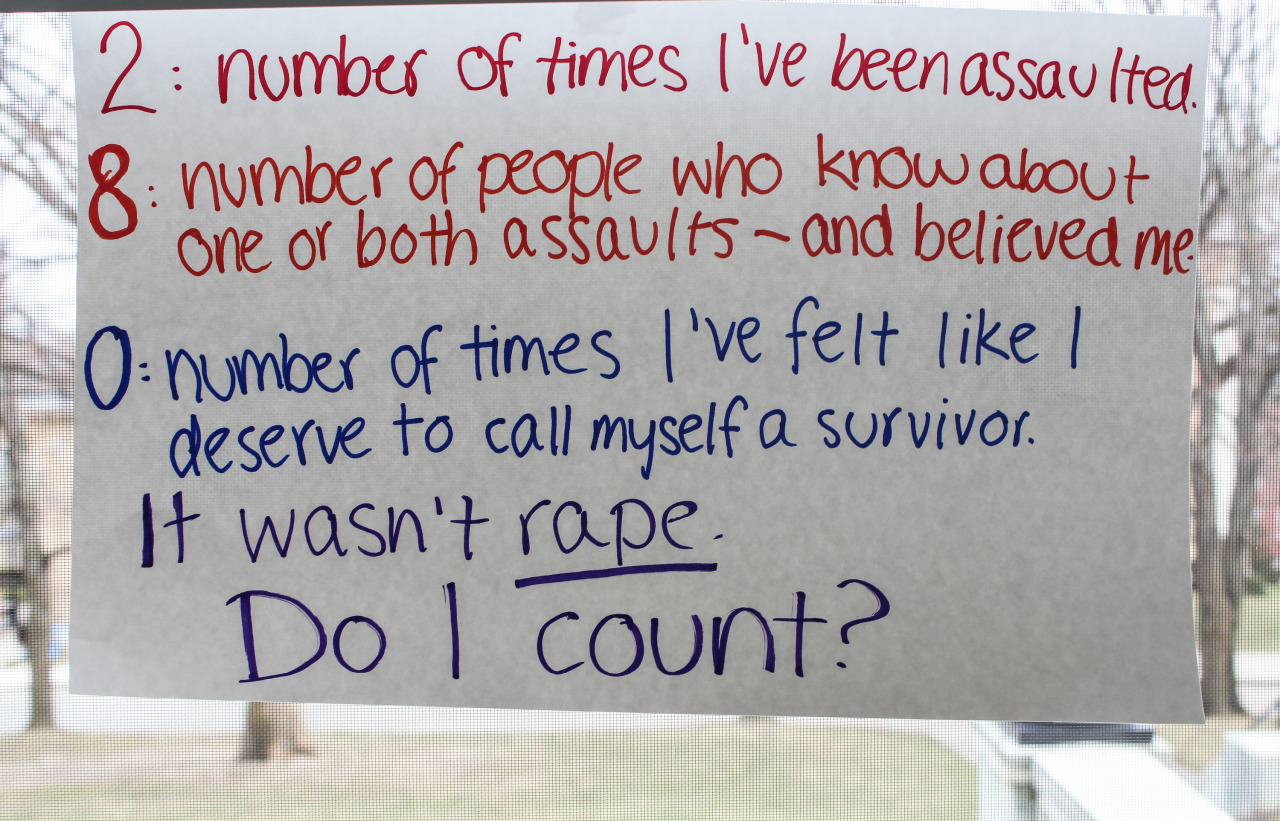 2: number of times I've been assaulted.
8: number of people who know about
one or both assaults – and believed me.
0: number of times I've felt like I
deserve to call myself a survivor.
It wasn't rape.
Do I count?